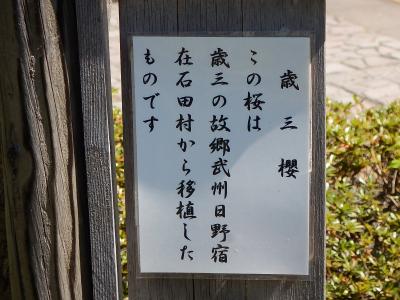 歳三櫻
この桜は
歳三の故郷武州日野宿
在石田村から移植した
ものです